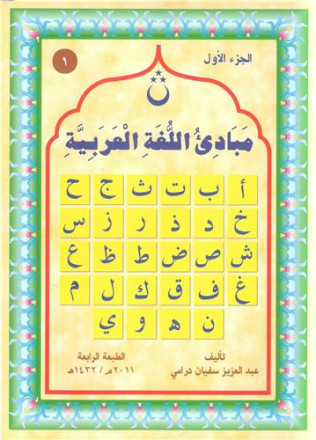 الجزء الأول
١
مَبَادِئُ اللُّغَةِ الْعَرَبِيَّةِ
أ ب ت ث ج ح
خ د ذ ر ز س
ش ص ض ط ظ ع
غ ف ق ك ل م
ن ه و ي
تأليف
عبد العزيز سفيان درامي
الطبعة الرابعة
٢٠١١م / ١٤٣٢هـ